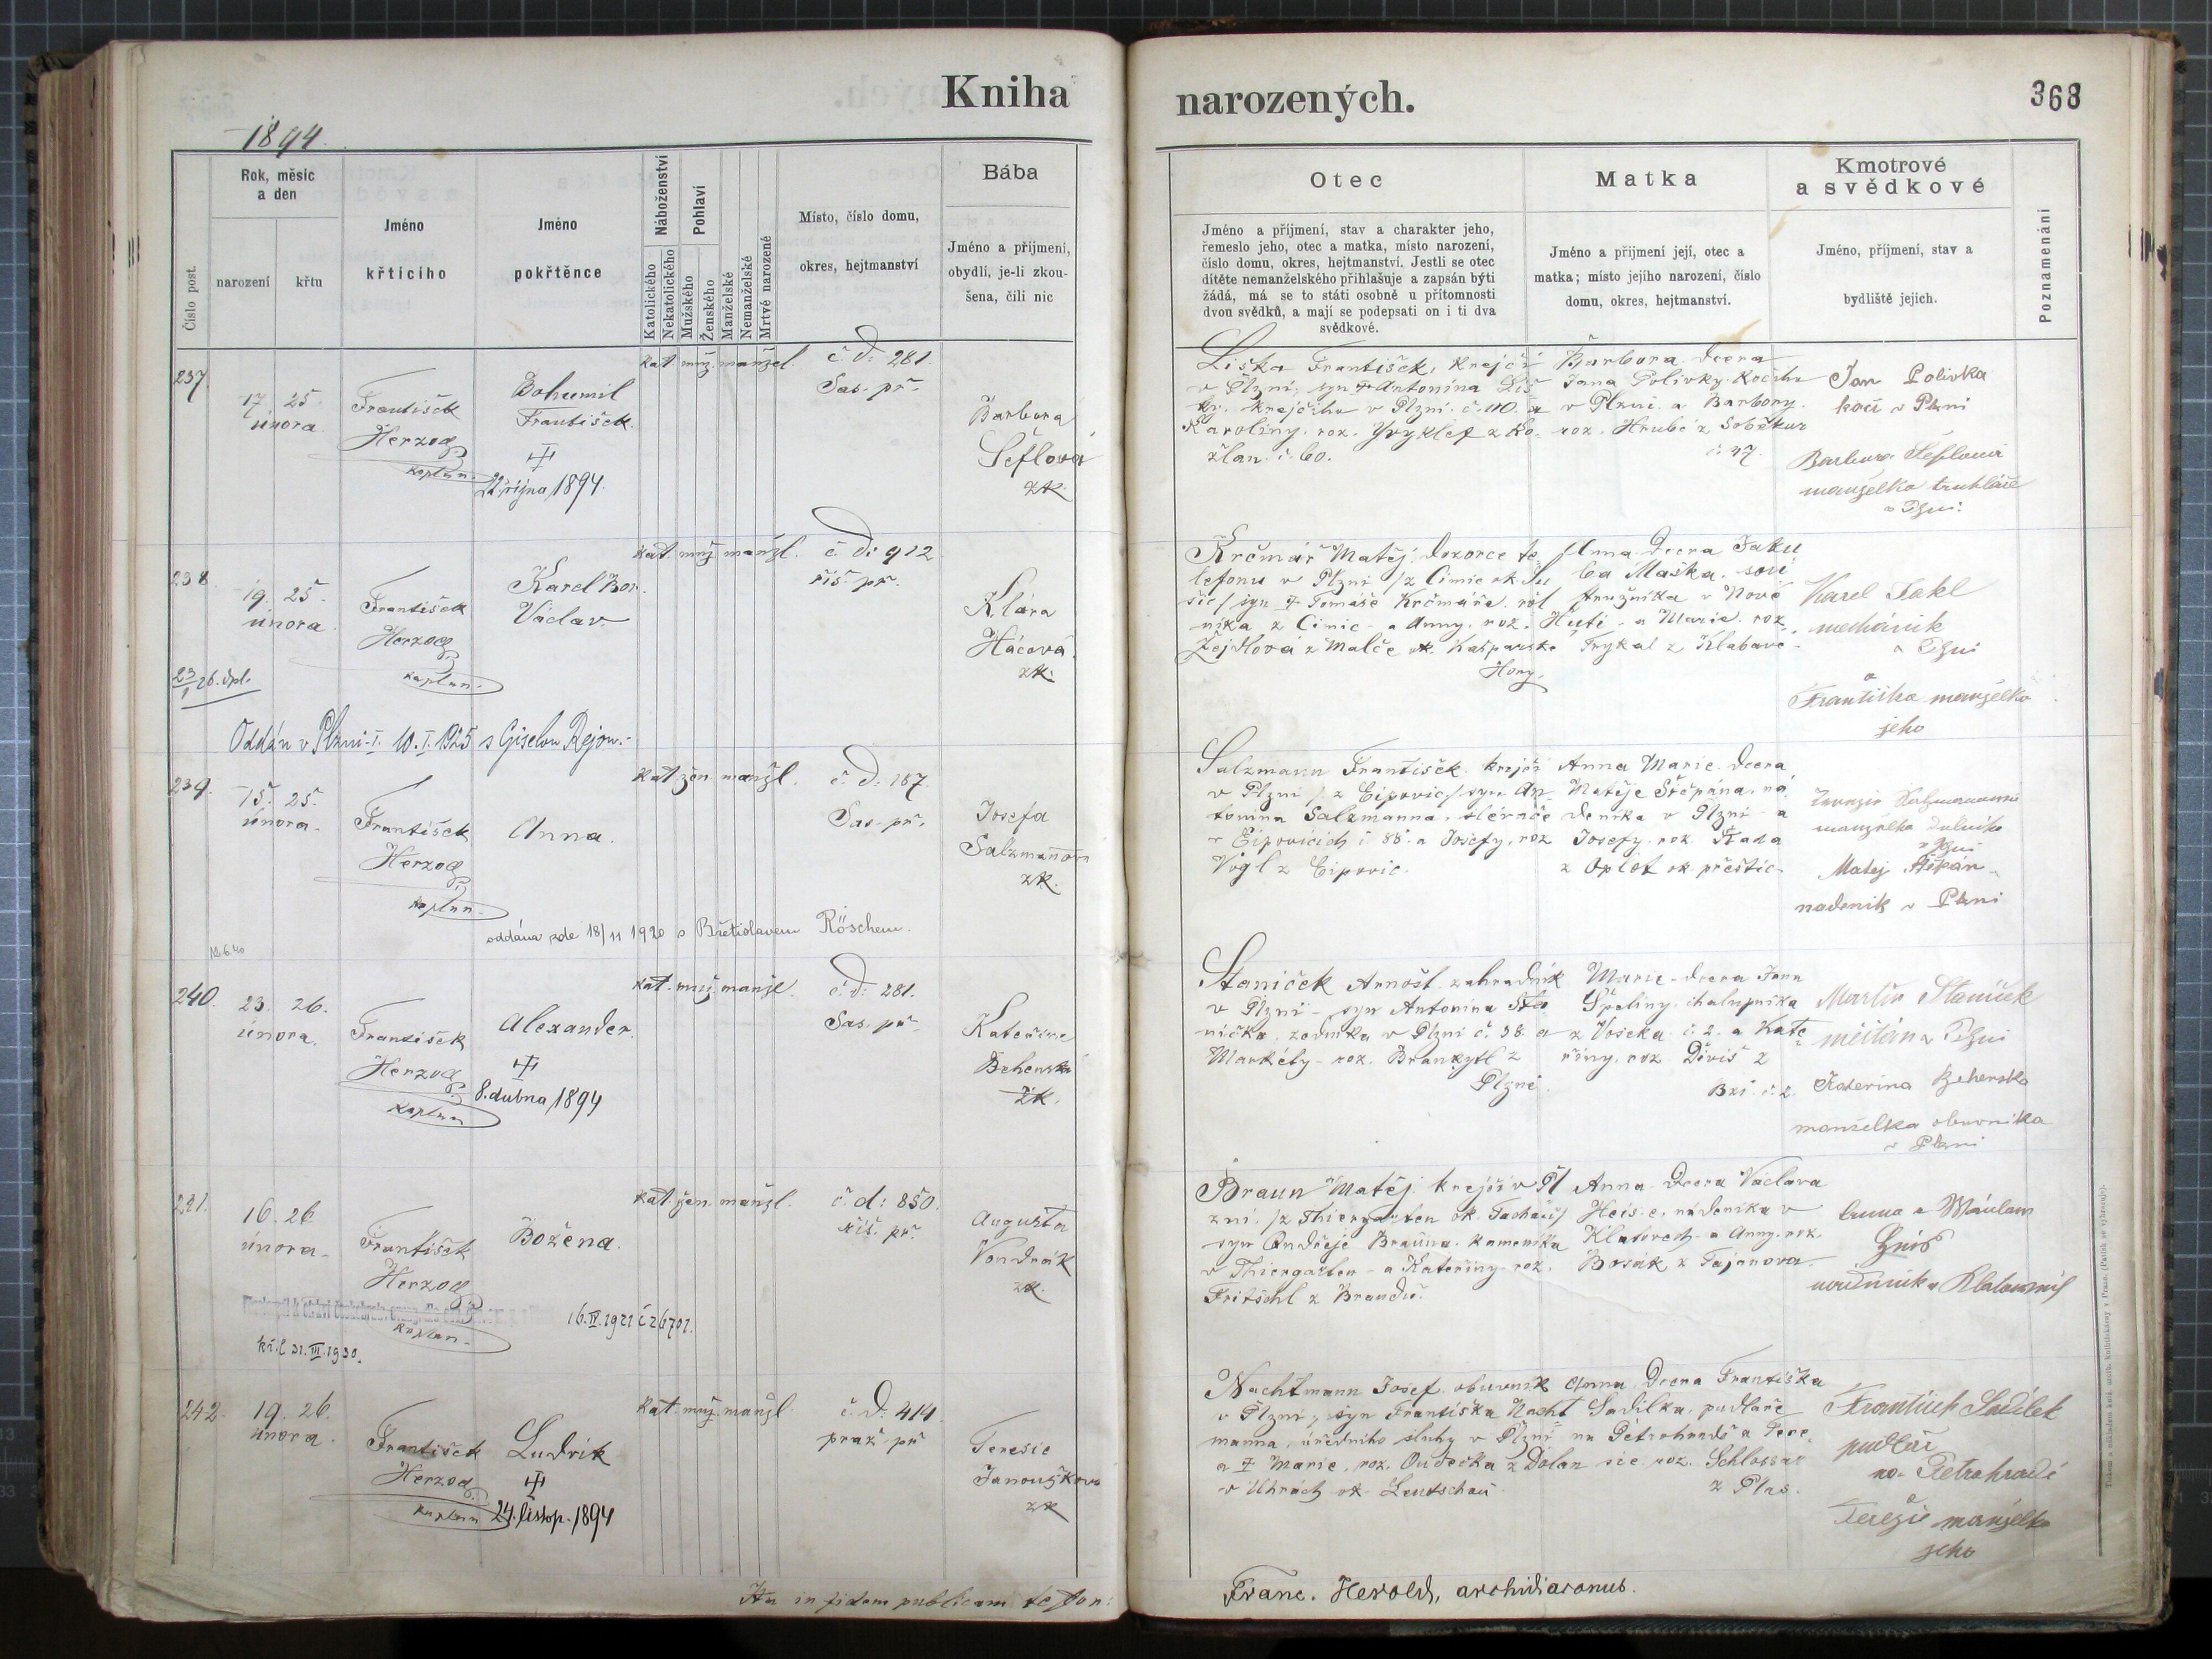 Kniha
narozených.
368
1894.
Číslo post.
Rok, měsíc
a den
narození
křtu
Jméno
křtícího
Jméno
pokřtěnce
Náboženství
Katolického
Nekatolického
Pohlaví
Mužského
Ženského
Manželské
Nemanželské
Mrtvě narozené
Místo, číslo domu,
okres, hejtmanství
Bába
Jméno a přijmení,
obydlí, je-li zkou-
šena, čili nic
Otec
Jméno a přijmení, stav a charakter jeho,
řemeslo jeho, otec a matka, místo narození,
číslo domu, okres, hejtmanství. Jestli se otec
dítěte nemanželského přihlašuje a zapsán býti
žádá, má se to státi osobně u přítomnosti
dvou svědků, a mají se podepsati on i ti dva
svědkové.
Matka
Jméno a přijmení její, otec a
matka; místo jejího narození, číslo
domu, okres, hejtmanství.
Kmotrové
a svědkové
Jméno, příjmení, stav a
bydliště jejich.
Poznamenání
237
17. 25.
února.
František
Herzog
kaplan.
Bohumil
František.
22. října 1894.
kat. muž. manžel.
č. d: 281.
Sas. př.
Barbora
Šeflová
zk.
Liška František, krejčí
v Plzni, syn † Antonína Liš
ky, krejčího v Plzni č. 110. a
Karoliny, roz.
žlan č. 60.
Barbora dcera
Jana Polívky kočího
v Plzni a Barbory
roz. Hrubé z Soběkur
č. 47.
Jan Polívka
kočí v Plzni
Barbora Šeflová
manželka truhláře
v Plzni.
238
19. 25.
února
František
Herzog
kaplan.
Karel Bor.
Václav.
kat. muž. manžl.
č. d: 912
říš. př.
Klára
Hácová.
zk.
Krčmář Matěj, dozorce te
lefonu v Plzni /z Čimic ok. Su
šic/ syn † Tomáše Krčmáře, rol
níka z Čimic a Anny, roz.
Zejdlová z Malče ok. Kašparské
Hory.
Anna dcera Jaku
ba Maška,
v Nové
Huti a Marie roz.
Trykal z Klabavé.
Karel Jakl
mechánik
v Plzni
a
Františka manželka
jeho
Oddán v Plzni-I. 10.I.1925 s Giselou Rejou.-
239.
15. 25.
února.
František
Herzog
kaplan.
Anna.
kat. žen. manžl.
č. d: 187.
Sas. př.
Josefa
Salzmannová
zk.
Salzmann František, krejčí
v Plzni / z Ejpovic/, syn An-
tonína Salzmanna, slévače
v Ejpovicích č. 88. a Josefy, roz
Vogl z Ejpovic.
Anna Marie dcera
Matěje Štěpána, ná
deníka v Plzni a
Josefy roz. Rada
z Oplot ok. přeštic.
manželka
v Plzni
Matěj Štěpán
nadenik v Plzni
oddána zde 18/11 1920 s Břetislavem Röschem.
12.6.40
240.
23. 26.
února.
František
Herzog
kaplan
Alexander.
8. dubna 1894
kat. muž. manže.
č. d: 281.
Sas. př.
Kateřina
Behenská
zk.
Staníček Arnošt zahradník
v Plzni - syn Antonína Sta
níčka, zedníka v Plzni č. 38. a
Markéty roz. Brankytl z
Plzně.
Marie dcera Jana
Špeliny, chalupníka
z Voseka č. 2. a Kate
řiny, roz. Diviš z
Bzí č. 2.
Martin Staníček
měšťan v Plzni
Kateřina Behenská
manželka obuvníka
v Plzni
241.
16. 26.
února.
František
Herzog
kaplan.
Božena.
kat. žen. manžl.
č. d: 850.
říš. př.
Augusta
Vondrák
zk.
Braun Matěj, krejčí v Pl
zni. /z Thiergarten ok. Tachau/
syn Ondřeje Brauna, kameníka
v Thiergarten a Kateřiny roz.
Fritschl z
Anna dcera Václava
nádeníka v
Klatovech a Anny, roz.
Bosák z Tajanova.
Anna a
16.IV.1921 č 26701.
kř. l. 31.III.1930.
242.
19. 26.
února.
František
Herzog
kaplan
Ludvík
24. listop. 1894
kat. muž. manžl.
č. d: 414
praž. př
Teresie
Janoušková
zk
Nachtmann Josef, obuvník
v Plzni, syn Františka Nacht
manna, úředního sluhy v Plzni
a † Marie, roz. Oudečka z Dolan
v Uhrách ok. Leutschau
Anna dcera Františka
Sadílka, pudláře
na Petrohradě a Tere
sie roz. Schlossar
z Plas.
František Sadílek
pudlář
na Petrohradě
a
Terezie manželka
jeho
Ita in fidem publicam testor:
Franc. Herold, archidiaconus.